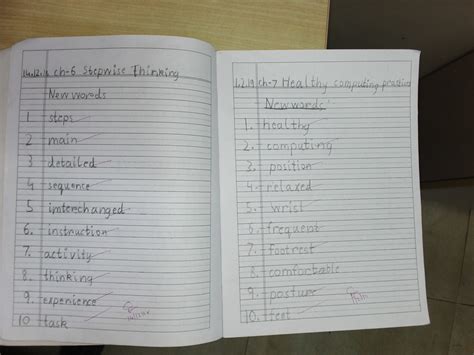 14.12.18 ch-6 Stepwise Thinking
New words
1 steps
2 main
3 detailed
4 sequence
5 imterchanged
6. instruction
7. activity
8. thinking
9. experience
10 task
1.2.19 ch-7 Healthy computing practices
New words
1. healthy
2. computing
3. position
4 relaxed
5. wrist
6. frequent
7. footrest
8. comfortable
9. posture
10. feet